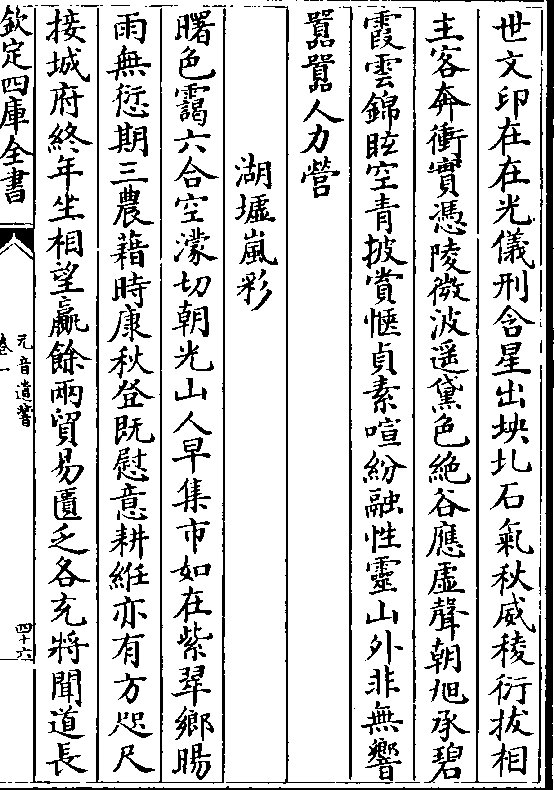 世文印在在光儀刑含星出坱圠石氣秋威稜衍拔相
主客奔衝實憑陵微波遥黛色絶谷應虛聲朝旭承碧
霞雲錦眩空青披賞愜貞素喧紛融性靈山外非無響
囂囂人力營
湖墟嵐彩
曙色靄六合空濛切朝光山人早集市如在紫翠鄉暘
雨無愆期三農藉時康秋登既慰意耕維亦有方咫尺
接城府終年坐相望贏餘兩貿易匱乏各充將聞道長
欽定四庫全書
元音遺響
卷一
四十六